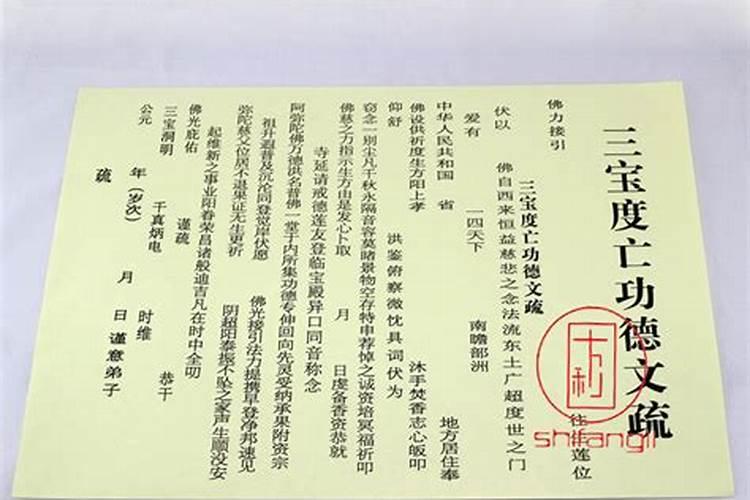 三宝度亡功德文疏
佛力接引 往生莲位
三宝度亡功德文疏
伏以 佛自西来恒益慈悲之念法流东土广超度世之门
爱有 一四天下 南瞻部洲
中华人民共和国 省 地方居住奉
佛设供祈度生方阳上孝 沐手焚香志心皈叩
仰舒 洪鉴俯察微忱具词伏为
窃念一别尘凡千秋永隔音容莫睹景物空存特申荐悼之诚资培冥福祈叩
佛慈之力指示生方由是发心卜取 月 日虔备香资恭就
寺延请戒德莲友登临宝殿异口同音称念
阿弥陀佛万德洪名普佛一堂于内所集功德专伸回向先灵受纳承果附资宗
祖升遐普及沉沦同登觉岸伏愿
弥陀慈父位居不退果证无生更祈 佛光接引法力提携早登净邦速见
起维新之事业阳眷荣昌诸般迪吉凡在时中全叨 阴超阳泰振不坠之家声生顺没安
佛光庇佑 谨疏
三宝洞明 千真炳电 恭干
公元 年(岁次) 月 日 时维 谨意弟子
疏
十方利
shifangli